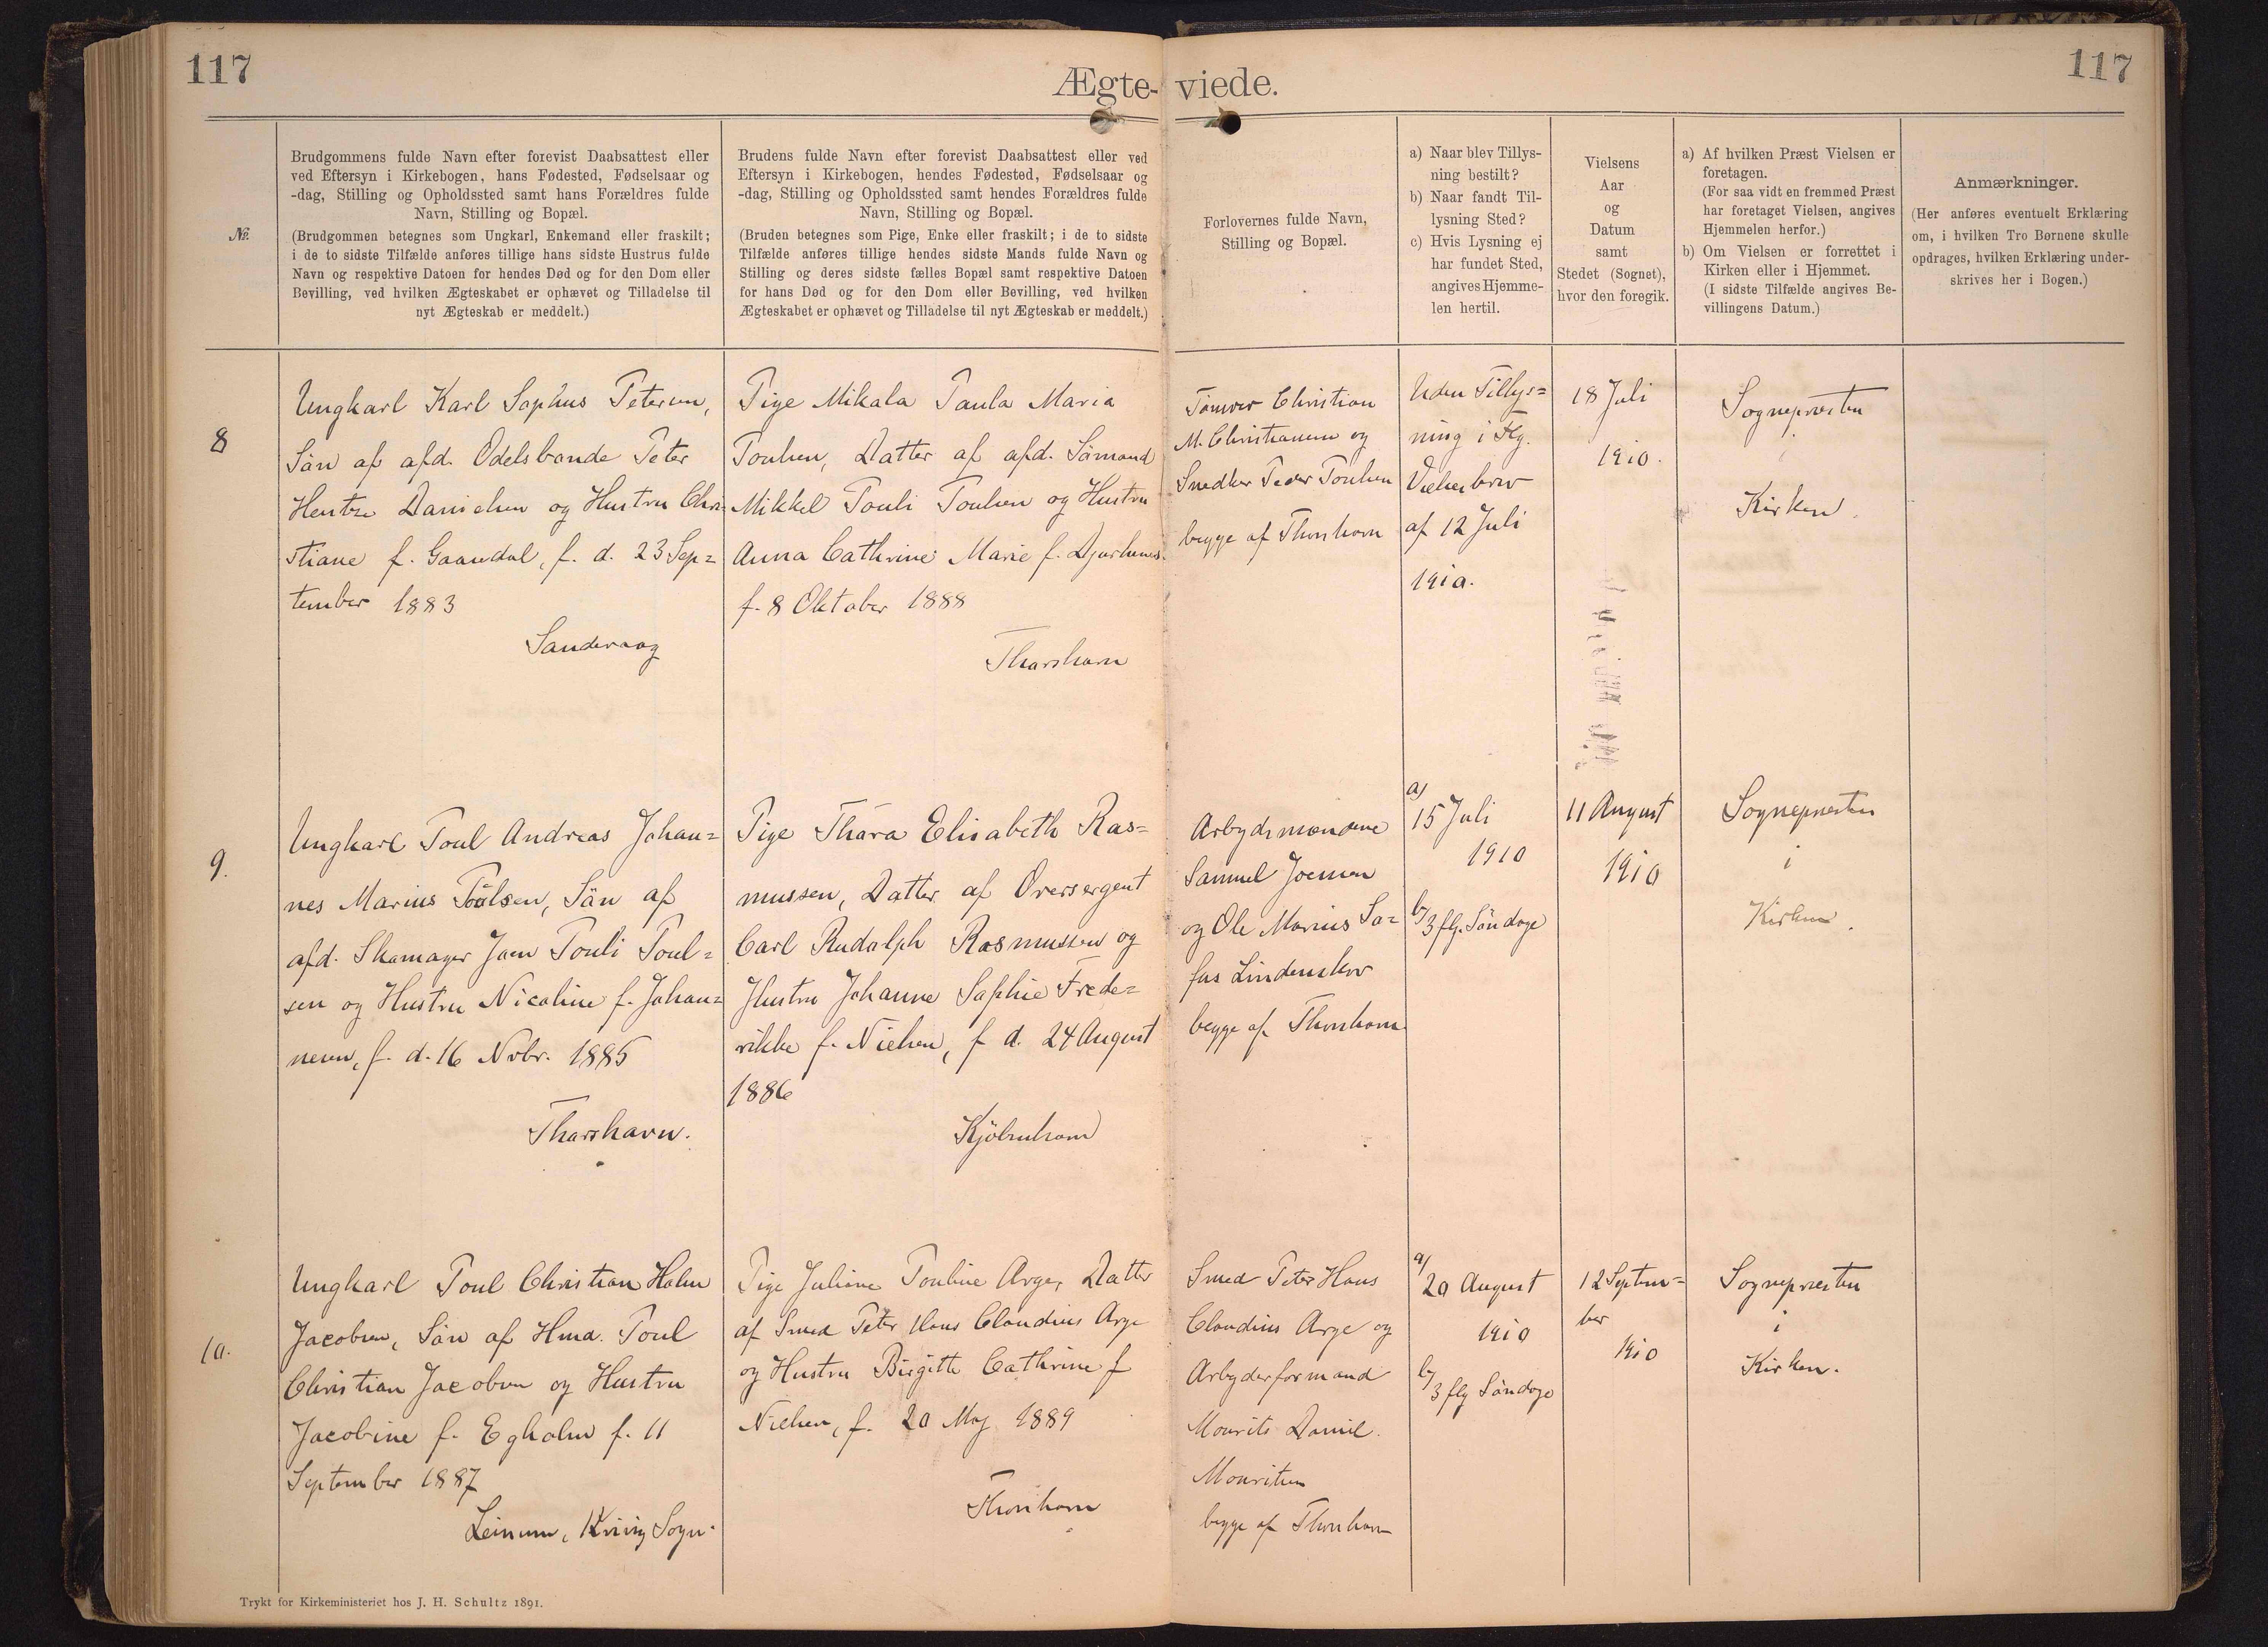 117
117
Ægte-viede.
№.
Brudgommens fulde Navn efter forevist Daabsattest eller
ved Eftersyn i Kirkebogen, hans Fødested, Fødselsaar og
-dag, Stilling og Opholdssted samt hans Forældres fulde
Navn, Stilling og Bopæl.
(Brudgommen betegnes som Ungkarl, Enkemand eller fraskilt;
i de to sidste Tilfælde anføres tillige hans sidste Hustrus fulde
Navn og respektive Datoen for hendes Død og for den Dom eller
Bevilling, ved hvilken Ægteskabet er ophævet og Tilladelse til
nyt Ægteskab er meddelt.)
Brudens fulde Navn efter forevist Daabsattest eller ved
Eftersyn i Kirkebogen, hendes Fødested, Fødselsaar og
-dag, Stilling og Opholdssted samt hendes Forældres fulde
Navn, Stilling og Bopæl.
(Bruden betegnes som Pige, Enke eller fraskilt; i de to sidste
Tilfælde anføres tillige hendes sidste Mands fulde Navn og
Stilling og deres sidste fælles Bopæl samt respektive Datoen
for hans Død og for den Dom eller Bevilling, ved hvilken
Ægteskabet er ophævet og Tilladelse til nyt Ægteskab er meddelt.)
Forlovernes fulde Navn,
Stilling og Bopæl.
a) Naar blev Tillys-
ning bestilt?
b) Naar fandt Til-
lysning Sted?
c) Hvis Lysning ej
har fundet Sted,
angives Hjemme-
len hertil.
Vielsens
Aar
og
Datum
samt
Stedet (Sognet),
hvor den foregik.
a) Af hvilken Præst Vielsen er
foretagen.
(For saa vidt en fremmed Præst
har foretaget Vielsen, angives
Hjemmelen herfor.)
b) Om Vielsen er forrettet i
Kirken eller i Hjemmet.
(I sidste Tilfælde angives Be-
villingens Datum.)
Anmærkninger.
(Her anføres eventuelt Erklæring
om, i hvilken Tro Børnene skulle
opdrages, hvilken Erklæring under-
skrives her i Bogen.)
8
Ungkarl Karl Sophus Petersen,
Sön af afd. Odelsbonde Peter
Hentze Danielsen og Hustru Chri-
stiane f. Gaardal, f. d. 23 Sep=
tember 1883
Sandevaag
Pige Mikala Paula Maria
Poulsen, Datter af afd. Sömand
Mikkel Pouli Poulsen og Hustru
Anna Cathrine Marie f. Djurhuus
f. 8 Oktober 1888
Thorshavn
Tömrer Christian
M. Christiansen og
Snedker Peder Poulsen
begge af Thorshavn
Uden Tillys=
ning i Flg.
Vielsesbrev
af 12 Juli
1910.
18 Juli
1910.
Sognepræsten
i
Kirken.
9.
Ungkarl Poul Andreas Johan=
nes Marius Poulsen, Sön af
afd. Skomager Joen Pouli Poul=
sen og Hustru Nicoline f. Johan=
nesen, f. d. 16 Novbr. 1885
Thorshavn.
Pige Thora Elisabeth Ras=
mussen, Datter af Oversergent
Carl Rudolph Rasmussen og
Hustru Johanne Sophie Frede=
rikke f. Nielsen, f d. 24 August
1886
Kjöbenhavn
Arbejdsmændene
Samuel Joensen
og Ole Marius So=
fus Lindenskov
begge af Thorshavn
a/
15 Juli
1910
b/3 flg. Söndage
11 August
1910
Sognepræsten
i
Kirken.
10.
Ungkarl Poul Christian Holm
Jacobsen, Sön af Hmd. Poul
Christian Jacobsen og Hustru
Jacobine f. Egholm f. 11
September 1887
Leinum, Kvivig Sogn.
Pige Juliane Pouline Arge, Datter
af Smed Peter Hans Claudius Arge
og Hustru Birgitte Cathrine f
Nielsen, f. 20 Maj 1889
Thorshavn
Smed Peter Hans
Claudius Arge og
Arbejderformand
Mourits Daniel
Mouritsen
begge af Thorshavn
a/
20 August
1910
b/3 flg Söndage
12 Septem=
ber
1910
Sognepræsten
i
Kirken.
Trykt for Kirkeministeriet hos J. H. Schultz 1891.